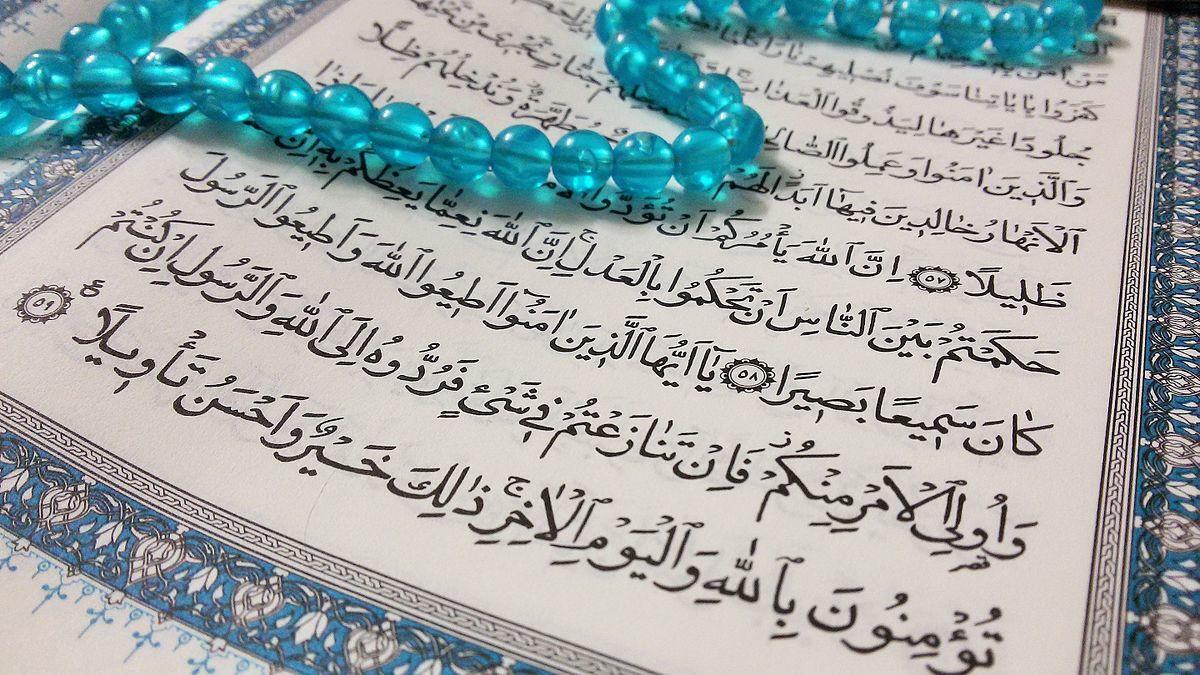 مَنْ اٰمَنَ
كَفَرُوا بِاٰيَاتِنَا سَوْفَ نُصْلِيهِمْ نَارًا
جُلُودًا غَيْرَهَا لِيَذُوقُوا الْعَذَابَ
وَالَّذِينَ اٰمَنُوا وَعَمِلُوا الصَّالِ جَنَّاتٍ تَجْرِى مِنْ تَحْتِهَا
الْاَنْهَارُ خَالِدِينَ فِيهَا اَبَدًا لَهُمْ طَهَّرَةٌ وَنُدْخِلُهُمْ ظِلًّا
ظَلِيلًا ﴿٥٧﴾ اِنَّ اللّٰهَ يَأْمُرُكُمْ اَنْ تُؤَدُّوا الْاَمَ
حَكَمْتُمْ بَيْنَ النَّاسِ اَنْ تَحْكُمُوا بِالْعَدْلِ اِنَّ اللّٰهَ نِعِمَّا يَعِظُكُمْ بِهِ اِنَّ
كَانَ سَمِيعًا بَصِيرًا ﴿٥٨﴾ يَا اَيُّهَا الَّذِينَ اٰمَنُوا اَطِيعُوا اللّٰهَ وَاَطِيعُوا الرَّسُولَ
وَاُولِى الْاَمْرِ مِنْكُمْ فَاِنْ تَنَازَعْتُمْ فِى شَىْءٍ فَرُدُّوهُ اِلَى اللّٰهِ وَالرَّسُولِ اِنْ كُنْتُمْ
تُؤْمِنُونَ بِاللّٰهِ وَالْيَوْمِ الْاٰخِرِ ذٰلِكَ خَيْرٌ وَاَحْسَنُ تَأْوِيلًا ﴿٥٩﴾